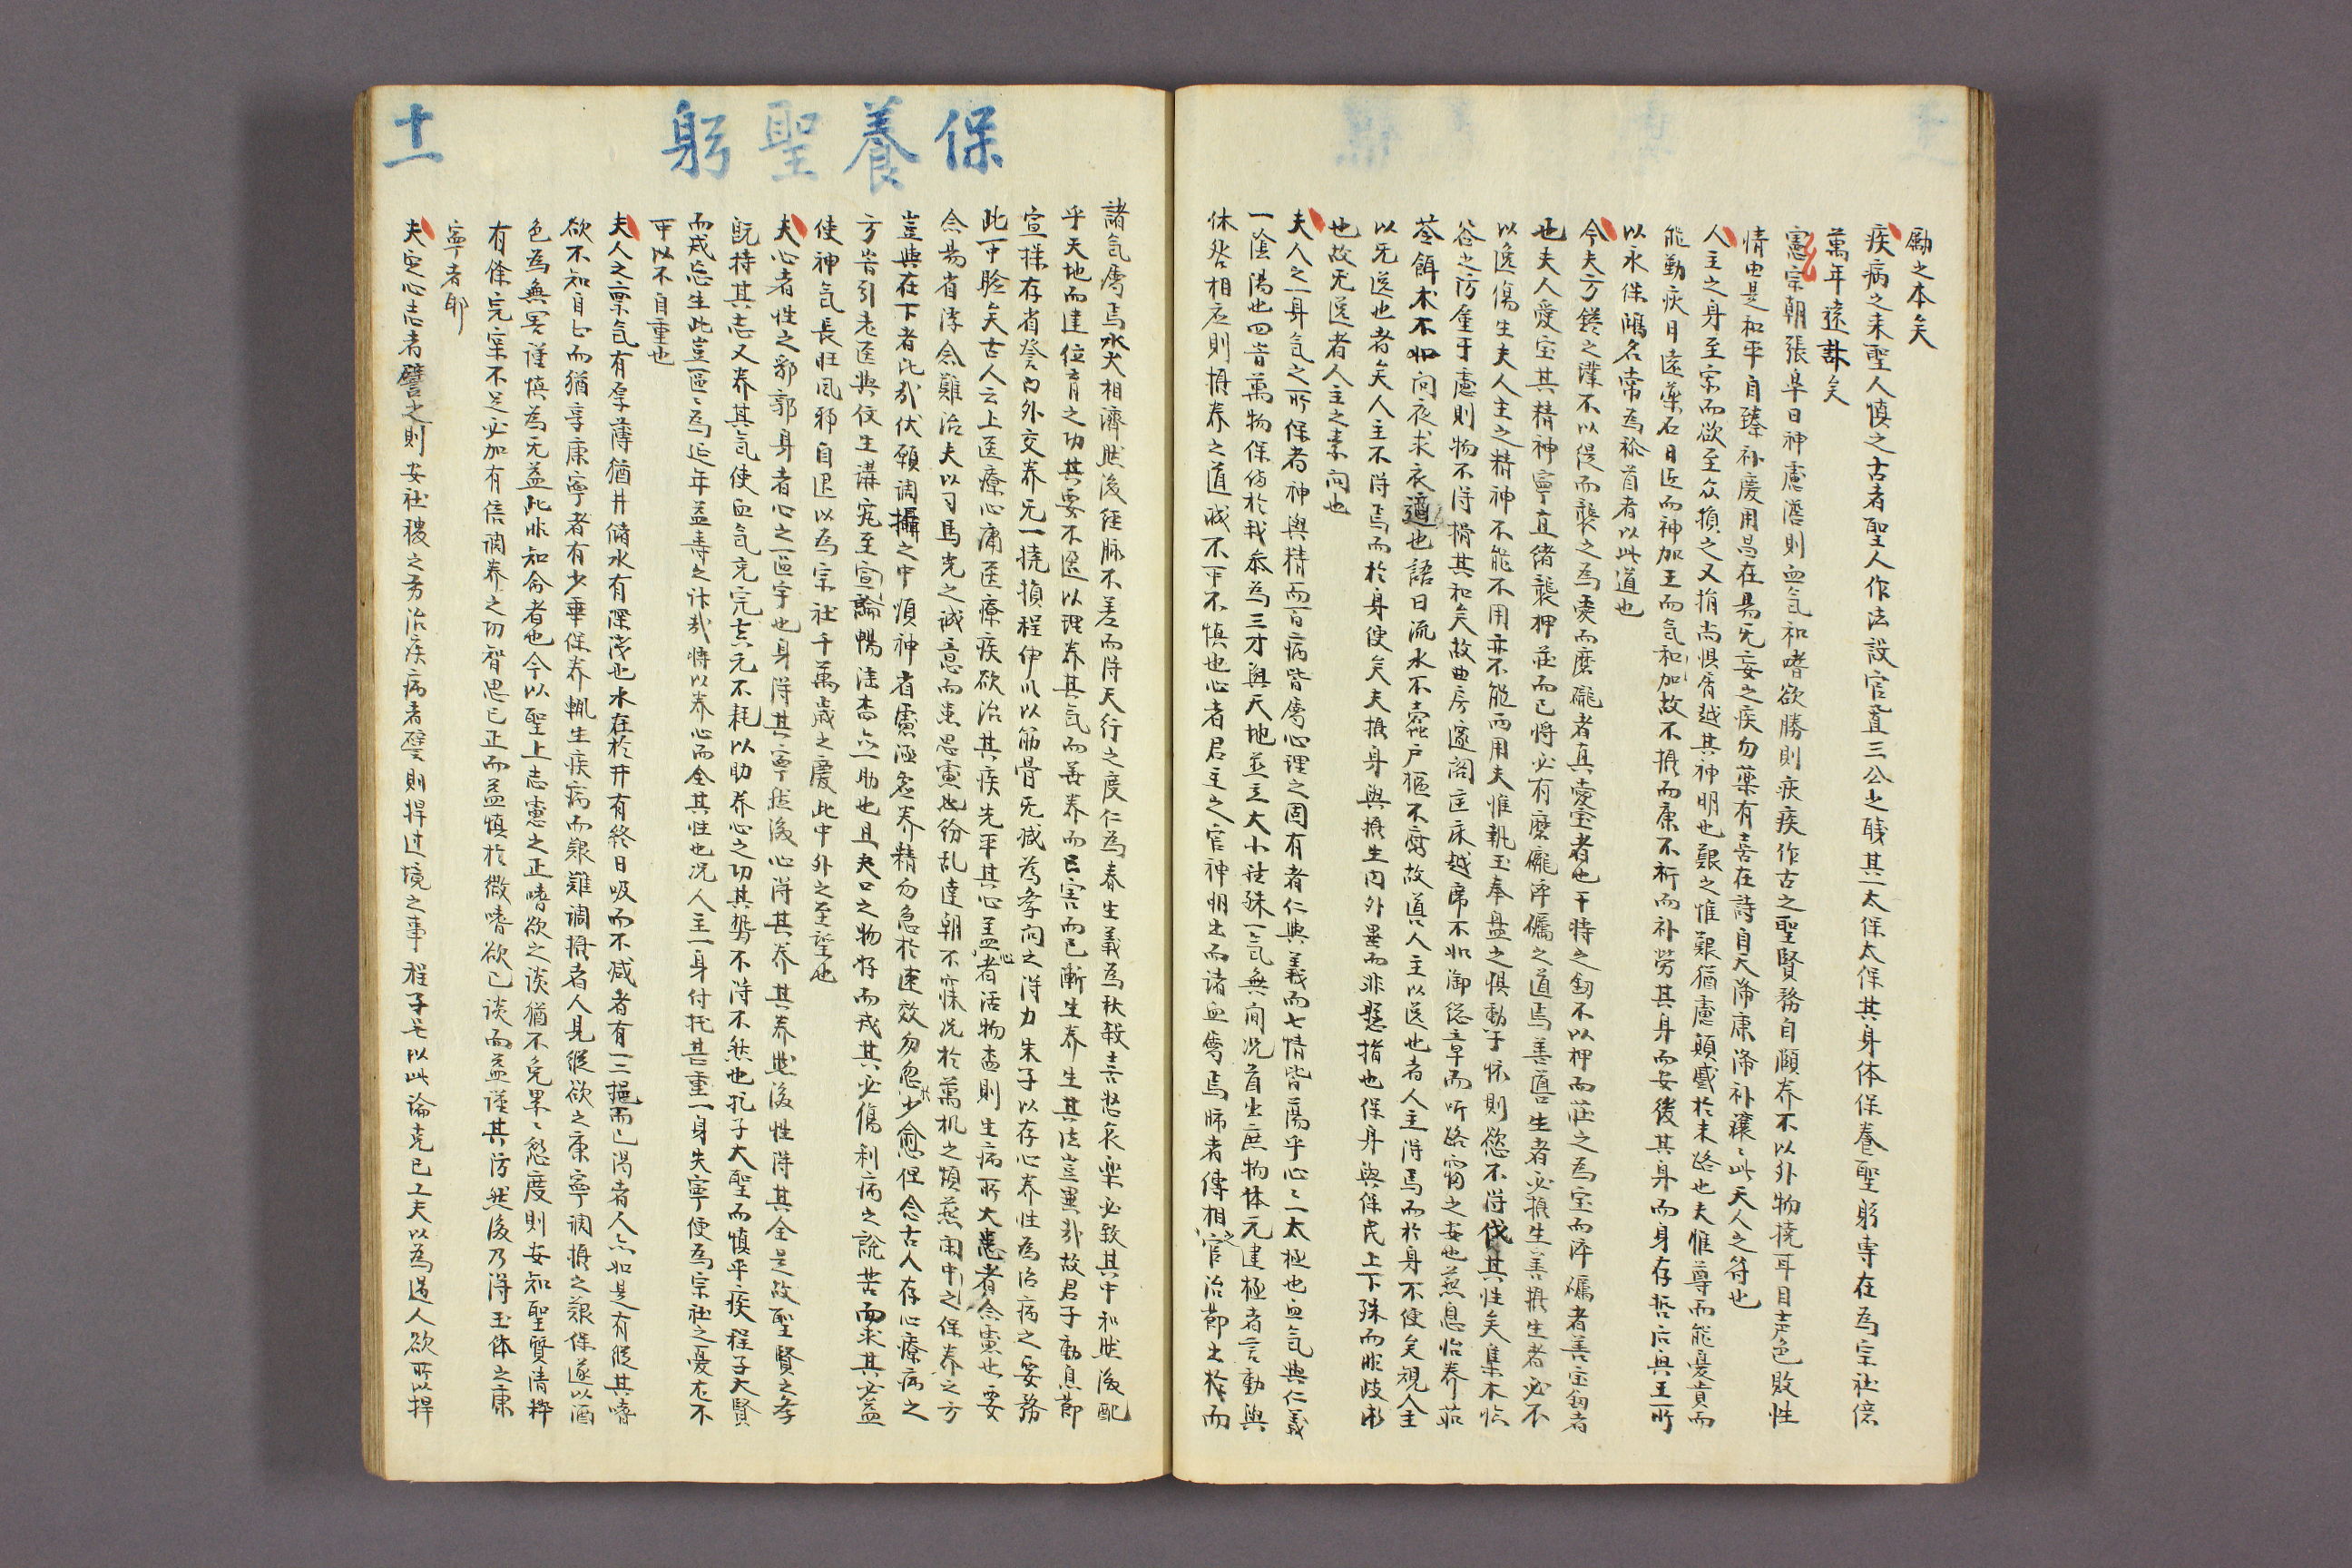 勵之本矣
疾病之来聖人慎之古者聖人作法設官置三公之職其一太保太保其身体保養聖躬專在為宗社億
萬年遠計矣
憲宗朝張皐曰神慮澹則血气和嗜欲勝則疾疢作古之聖賢務自頤养不以外物撓耳目声色敗性
情由是和平自臻补慶用昌在易无妄之疾勿藥有喜在詩自天降康降补穰〻此天人之符也
人主之身至宗而欲至众損之又捐尚惧隕越其神明也艱之惟艱猶慮顛蹙於末路也夫惟尊而能憂貴而
能勤疢日遠藥石日近而神加王而气和加故不摂而康不祈而补勞其身而安後其身而身存哲后與王所
以永保鴻名常為称首者以此道也
今夫方鏡之潔不以徒而襲之為愛而磨礲者真愛宝者也干將之釼不以押而莊之為宝而淬礪者善宝釼者
也夫人愛宝其精神寧直绪襲押莊而已將必有磨礲淬礪之道焉善養生者必損生善摂生者必不
以逸傷生夫人主之精神不能不用亦不能两用夫惟執玉奉盈之惧動于怀則慾不得伐其性矣集木临
谷之防廑于慮則物不得滑其和矣故曲房邃阁匡床越席不如御总章而听路寢之安也燕息怡养茹
苓餌术不如问夜求衣適也語曰流水不蠹户樞不腐故養人主以逸也者人主得焉而於身不便矣規人主
以无逸也者矣人主不得焉而於身便矣夫摂身與摂生内外異而非懸指也保身與保民上下殊而非歧术
也故无逸者人主之素问也
夫人之一身气之所保者神與精而百病皆傷心理之固有者仁與義而七情皆蕩乎心〻一太極也血气與仁義
一陰陽也四音萬物保佸於我叅為三才與天地並立大小虽殊一气無间况首出庶物体元建極者言動與
休咎相応則摂养之道誠不可不慎也心者君主之官神明出而诸血属焉肺者傳相之官治節出於而
保養聖躬
諸气属焉水火相濟然後経脉不差而得天行之度仁為春生義為秋殺喜怒哀樂必致其中和然後配
乎天地而建位育之功其要不過以理养其气而善养而已害而已漸生养生其法豈異哉故君子動息節
宣操存省察内外交养无一撓損程伊川以筋骨无减為季问之得力朱子以存心养性為治病之要務
此可驗矣古人云上医療心庸医療疾欲治其疾先平其心盖心者活物盍則生病所大患者念慮也要
念易省浮念難治夫以司馬光之誠意而患思慮也纷乱達朝不寐况於萬机之煩燕闲中之保养之方
豈與在下者比哉伏願調攝之中煩神省慮涵養养精勿急於速效勿忽於少愈但念古人存心療病之
方皆引老医與伎生講究至宣諭暢洼盍亦一助也且夫口之物好而戎其必傷利病之說苦而求其必益
使神气長旺风邪自退以為宗社千萬歳之慶此中外之至望也
夫心者性之郛郭身者心之區宇也身得其寧然後心得其养其养然後性得其全是故聖賢之季
既持其志又养其气使血气充完真元不耗以助养心之功其势不得不然也孔子大聖而慎乎疾程子大賢
而戎忘生此豈區〻為延年益寿之计哉將以养心而全其性也况人主一身付托甚重一身失寧便為宗社之憂尤不
可以不自重也
夫人之禀气有厚薄猶井儲水有深浅也水在於井有終日吸而不减者有一二挹而已渴者人亦如是有縱其嗜
欲不知自占而猶享康寧者有少乖保养輒生疾病而艱難調摂者人見縱欲之康寧調摂之艱保遂以酒
色為無害謹慎為无益此非知命者也今以聖上志慮之正嗜欲之淡猶不免累〻愆度則安知聖賢清粹
有餘完寀不足必加有倍調养之功智思已正而益慎於微嗜欲已淡而益謹其防然後乃得玉体之康
寧者耶
夫定心志者譬之則安社稷之方治疾病者譬則捍过境之事程子尤以此論克已工夫以為遏人欲所以捍
十一